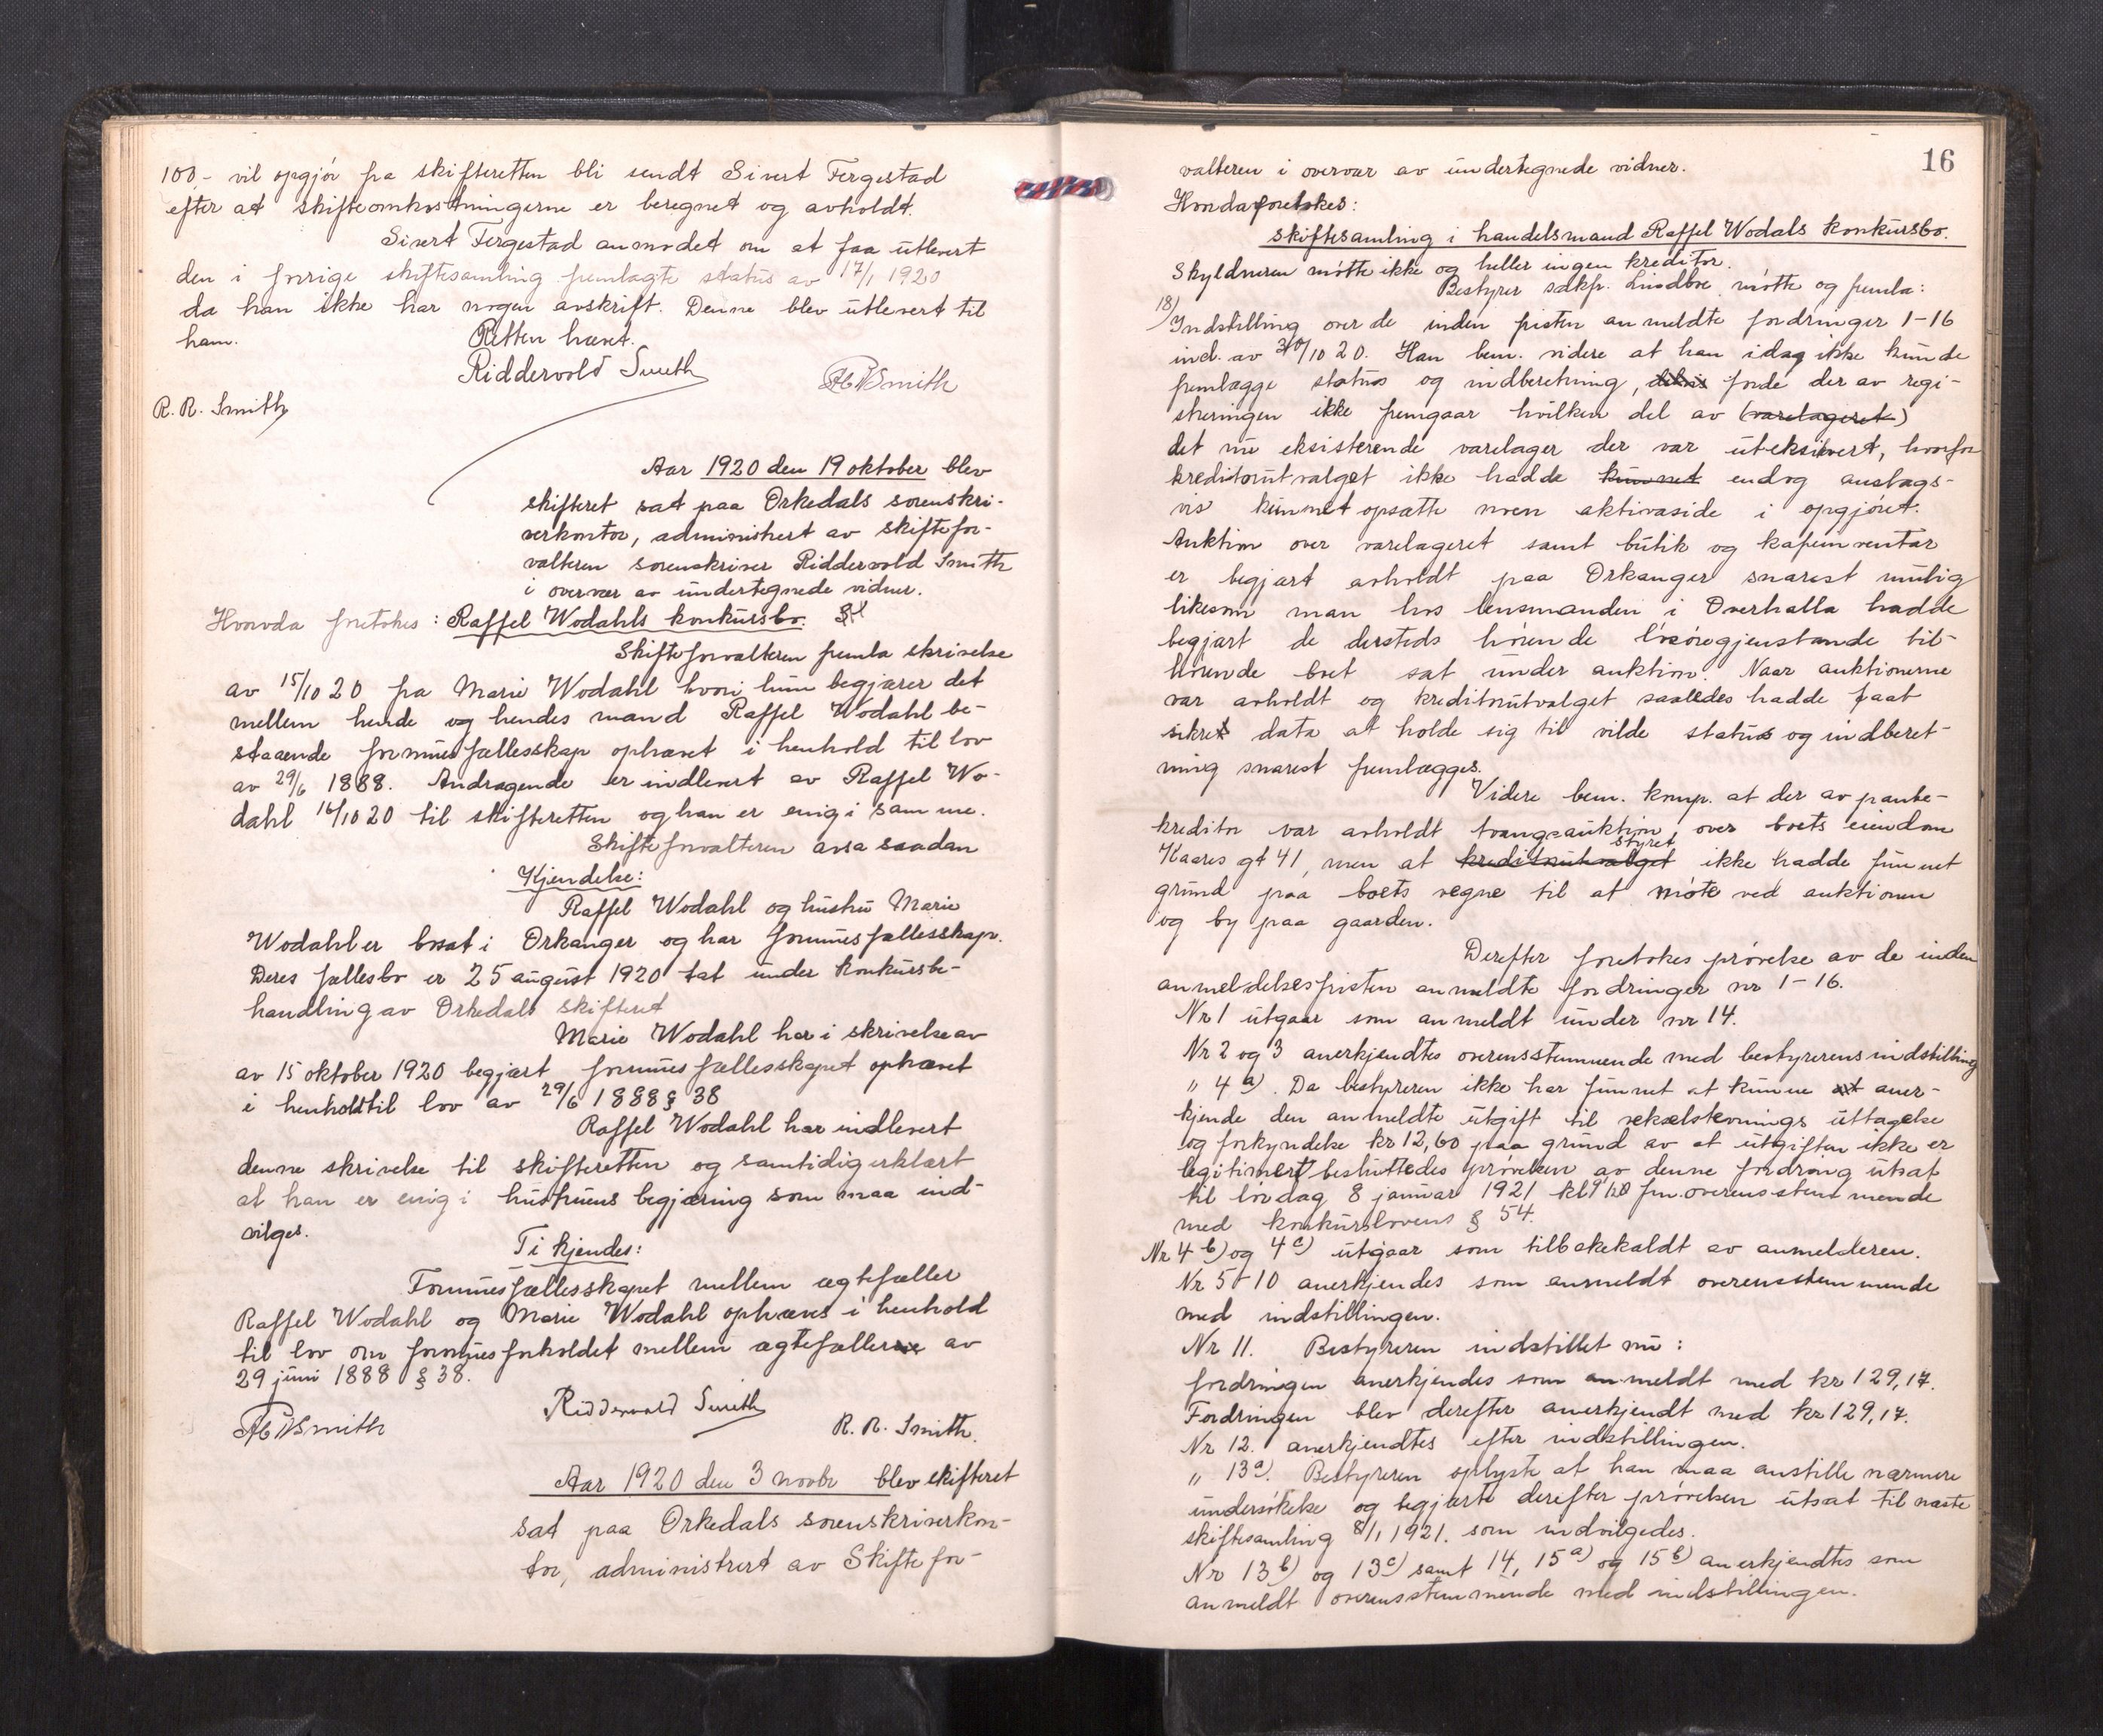 100- vil opgjør fra skifteretten bli sendt Sivert Fergestad
efter at skifteomkostningerne er beregnet og avholdt.
Sivert Fergestad anmodet om at faa utlevert
den i forrige skiftesamling fremlagte status av 17/1 1920
da han ikke har nogen avskrift. Denne blev utlevert til
ham.
Retten hævet.
Riddervold Smith
R. R. Smith
Aar 1920 den 19 oktober blev
skifteret sat paa Orkedals sorenskri-
verkontor, administrert av skiftefor-
valteren sorenskriver Riddervold Smith
i overvær av undertegnede vidner.
Hvorda foretokes: Raffel Wodahls konkursbo.
Skifteforvalteren fremla skrivelse
av 15/10 20 fra Marie Wodahl hvori hun begjærer det
mellem hende og hendes mand Raffel Wodahl be-
staaende formuesfællesskap ophævet i henhold til lov
av 29/6 1888. Andragende er indlevert av Raffel Wo-
dahl 16/10 20 til skifteretten og han er enig i samme.
Skifteforvalteren avsa saadan
Kjendelse:
Raffel Wodahl og hustru Marie
Wodahl er bosat i Orkanger og har formuesfællesskap.
Deres fællesbo er 25 august 1920 tat under konkursbe-
handling av Orkedals skifteret
Marie Wodahl har i skrivelse av
av 15 oktober 1920 begjært formuesfællesskapet ophævet
i henhold til lov av 29/6 1888 § 38
Raffel Wodahl har indlevert
denne skrivelse til skifteretten og samtidig erklært
at han er enig i hustruens begjæring som maa ind-
vilges.
Ti kjendes:
Formuesfællesskapet mellem ægtefæller
Raffel Wodahl og Marie Wodahl ophæves i henhold
til lov om formuesforholdet mellem ægtefæller av
29 juni 1888 § 38.
Riddervold Smith
R. R. Smith.
Aar 1920 den 3 novbr blev skifteret
sat paa Orkedals sorenskriverkon-
tor, administrert av Skiftefor-
16
valteren i overvær av undertegnede vidner.
Hvorda foretokes:
skiftesamling i handelsmand Raffel Wodals konkursbo.
Skyldneren møtte ikke og heller ingen kreditor.
Bestyrer sakfr. Lindboe møtte og fremla:
18) Indstilling over de inden fristen anmeldte fordringer 1-16
incl. av 30/10 20. Han bem. videre at han idag ikke kunde
fremlægge status og indberetning, fordi der av regi-
streringen ikke fremgaar hvilken del av (varelageret)
det nu eksisterende varelager der var uteksivert, hvorfor
kreditorutvalget ikke hadde kunnet endog anslags-
vis kunnet opsætte noen aktivaside i opgjøret.
Auktion over varelageret samt butik og kafeinventar
er begjært avholdt paa Orkanger snarest mulig
likesom man hos lensmanden i Overhalla hadde
begjært de dersteds hørende løsøregjenstande til-
hørende boet sat under auktion. Naar auktionerne
var avholdt og kreditorutvalget saaledes hadde faat
sikret data at holde sig til vilde status og indberet-
ning snarest fremlægges.
Videre bem. komp. at der av pante-
kreditor var avholdt tvangsauktion, over boets eiendom
Kaares gt 41, men at kreditorutvalget styret ikke hadde funnet
grund paa boets vegne til at møte ved auktionen
og by paa gaarden.
Derefter foretokes prøvelse av de inden
anmeldelsesfristen anmeldte fordringer nr 1-16.
Nr 1 utgaar som anmeldt under nr 14.
Nr 2 og 3 anerkjendtes overensstemmende med bestyrerens indstilling
" 4 a). Da bestyreren ikke har funnet at kunne at aner-
kjende den anmeldte utgift til vekselstevnings uttagelse
og forkyndelse kr 12,60 paa grund av at utgiften ikke er
legitimert besluttedes prøvelsen av denne fordring utsat
til lørdag 8 januar 1921 kl 9 1/2 fm. overensstemmende
med konkurslovens § 54.
Nr 4 b) og 4 c) utgaar som tilbakekaldt av anmelderen.
Nr 5-10 anerkjendes som anmeldt overensstemmende
med indstillingen.
Nr 11. Bestyreren indstillet nu:
fordringen anerkjendes som anmeldt med kr 129,17.
Fordringen blev derefter anerkjendt med kr 129,17.
Nr 12. anerkjendtes efter indstillingen.
" 13 a). Bestyreren oplyste at han maa anstille nærmere
undersøkelse og begjærte derefter prøvelsen utsat til næste
skiftesamling 8/1 1921. som indvilgedes.
Nr 13 b) og 13 c) samt 14, 15 a) og 15 b) anerkjendtes som
anmeldt overensstemmende med indstillingen.